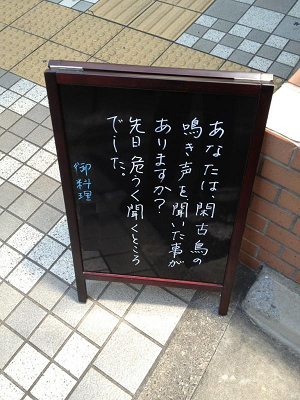 あなたは、閑古鳥の
鳴き声を聞いた事が
ありますか?
先日危うく聞くところ
でした。
御料理